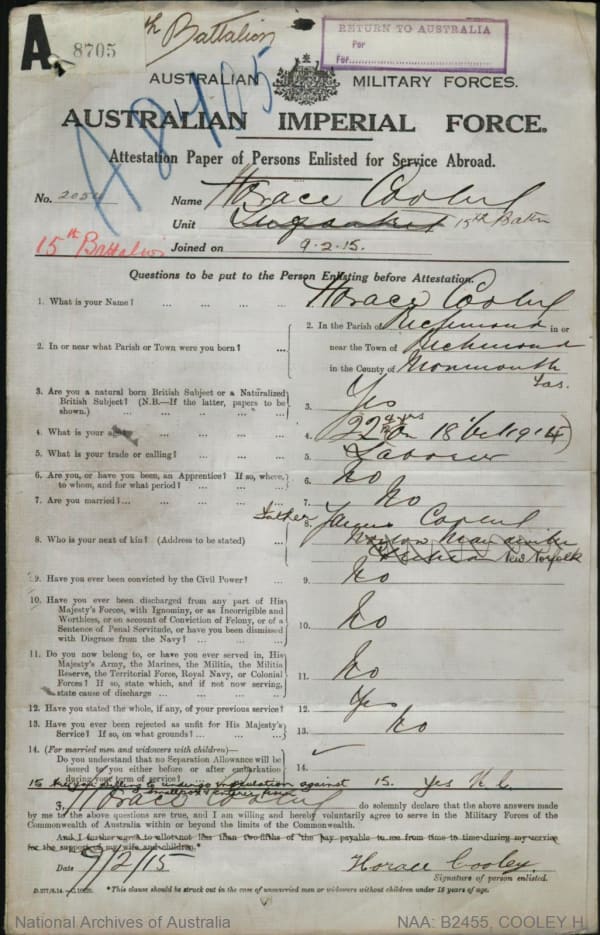 A.
8705
th Battalion
RETURN TO AUSTRALIA
For
For
A 8405
AUSTRALIAN MILITARY FORCES.
AUSTRALIAN IMPERIAL FORCE.
Attestation Paper of Persons Enlisted for Service Abroad.
No. 2054 Name Horace Cooley
Unit 15th Battn
15th Battalion Joined on 9.2.15.
Questions to be put to the Person Enlisting before Attestation.
1. What is your Name? ... ... ... ... Horace Cooley
2. In or near what Parish or Town were you born? ... 2. In the Parish of Richmond in or
near the Town of Richmond
in the County of Monmouth
Tas.
3. Are you a natural born British Subject or a Naturalized
British Subject? (N.B.—If the latter, papers to be
shown.) ... ... ... ... 3. Yes
4. What is your age? ... ... ... 4. 22 yrs on 18 Oct 1914)
5. What is your trade or calling? ... ... ... 5. Labourer
6. Are you, or have you been, an Apprentice? If so, where,
to whom, and for what period? ... ... ... 6. No
7. Are you married? ... ... ... ... 7. No
8. Who is your next of kin? (Address to be stated) ... 8. Father Cooley
New Norfolk
9. Have you ever been convicted by the Civil Power? ... 9. No
10. Have you ever been discharged from any part of His
Majesty's Forces, with Ignominy, or as Incorrigible and
Worthless, or on account of Conviction of Felony, or of a
Sentence of Penal Servitude, or have you been dismissed
with Disgrace from the Navy? ... ... ... 10. No
11. Do you now belong to, or have you ever served in, His
Majesty's Army, the Marines, the Militia, the Militia
Reserve, the Territorial Force, Royal Navy, or Colonial
Forces? If so, state which, and if not now serving,
state cause of discharge ... ... ... 11. No
12. Have you stated the whole, if any, of your previous service? 12. Yes
13. Have you ever been rejected as unfit for His Majesty's
Service? If so, on what grounds? ... ... 13. No
14. (For married men and widowers with children)—
Do you understand that no Separation Allowance will be
issued to you either before or after embarkation
during your term of service? ... ... 14.
15 Are you willing to undergo inoculation against 15. Yes H.C.
smallpox & enteric fever
I, Horace Cooley do solemnly declare that the above answers made
by me to the above questions are true, and I am willing and hereby voluntarily agree to serve in the Military Forces of the
Commonwealth of Australia within or beyond the limits of the Commonwealth.
And I further agree to allot not less than two-fifths of the pay payable to me from time to time during my service
for the support of my wife and children.*
Date 9/2/15 Horace Cooley.
Signature of person enlisted.
*This clause should be struck out in the case of unmarried men or widowers without children under 18 years of age.
National Archives of Australia NAA: B2455, COOLEY H